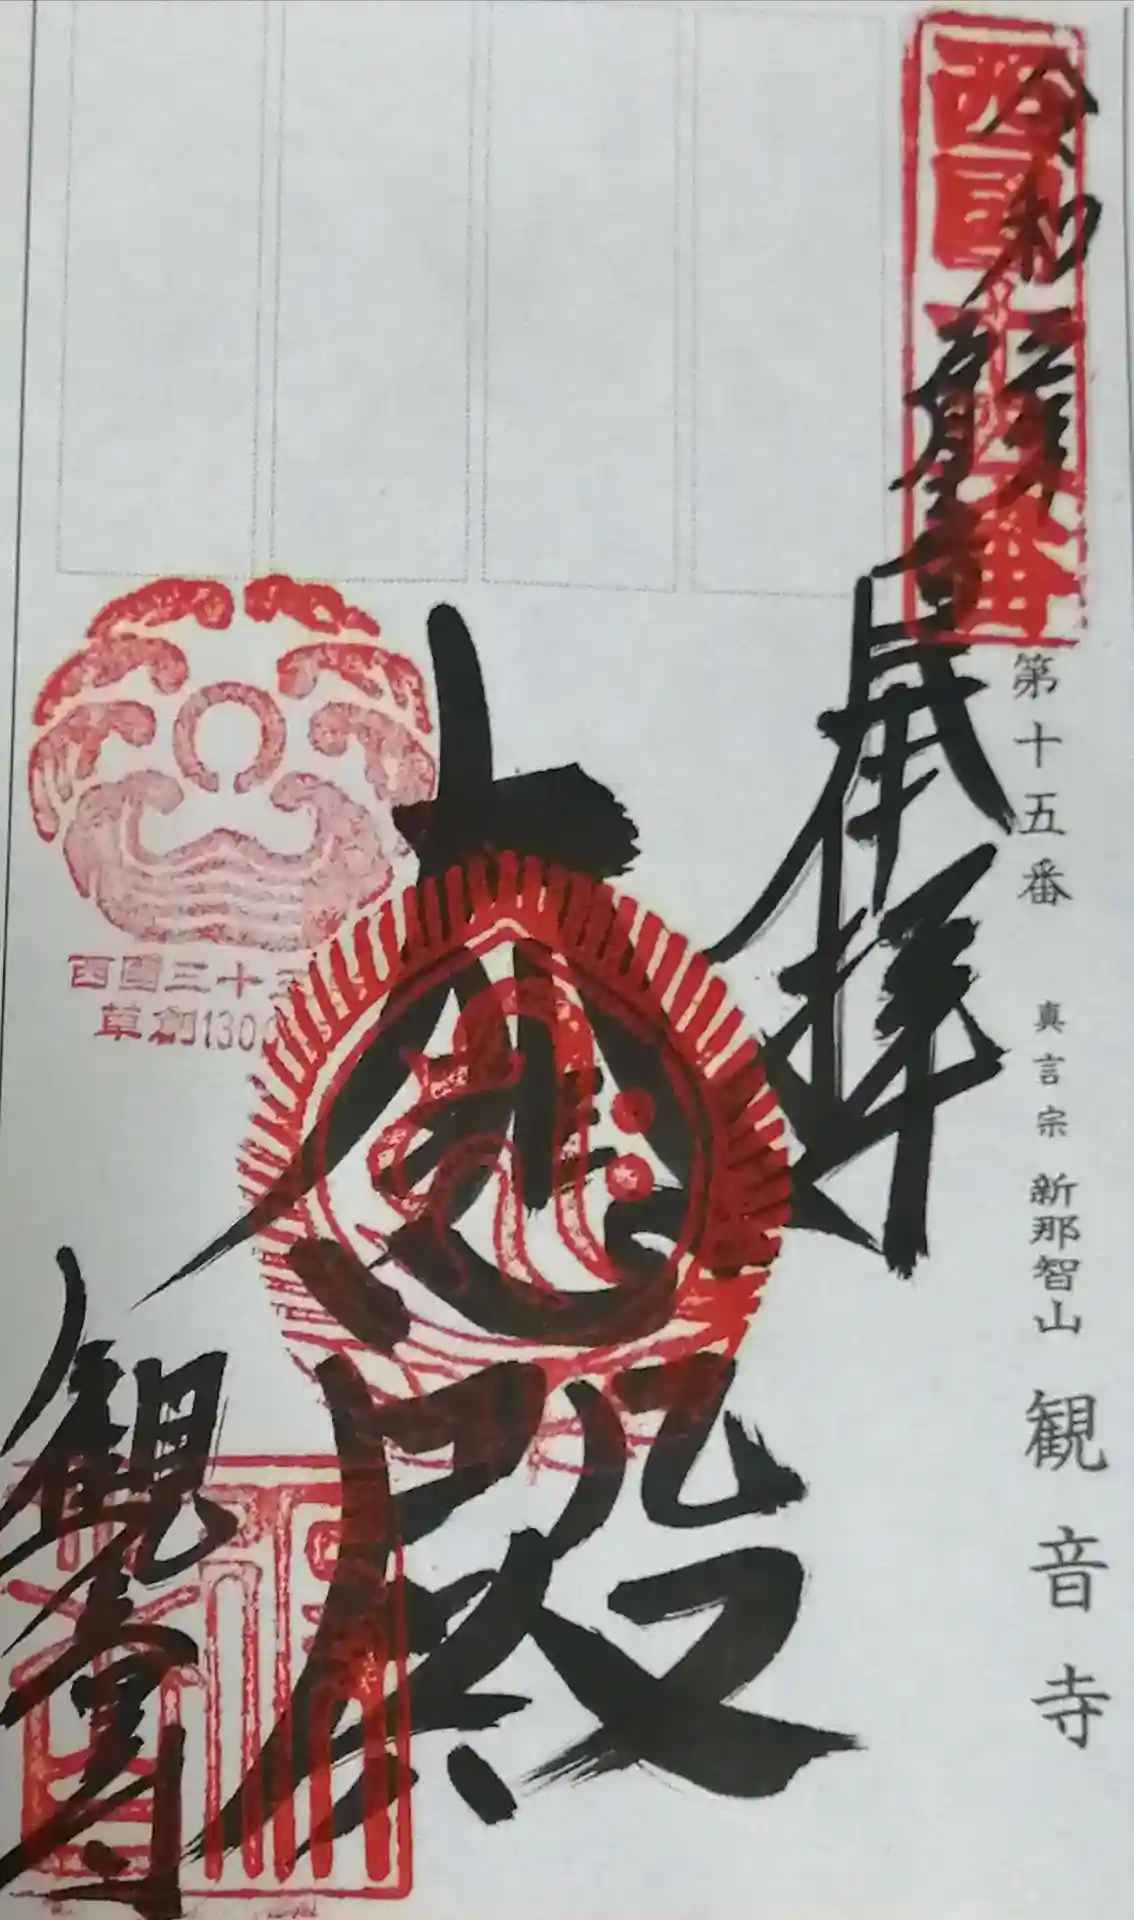 第十五番 真言宗 新那智山 観音寺
西国十五番
令和
奉拝
大悲殿
観音寺
西國三十三
草創130